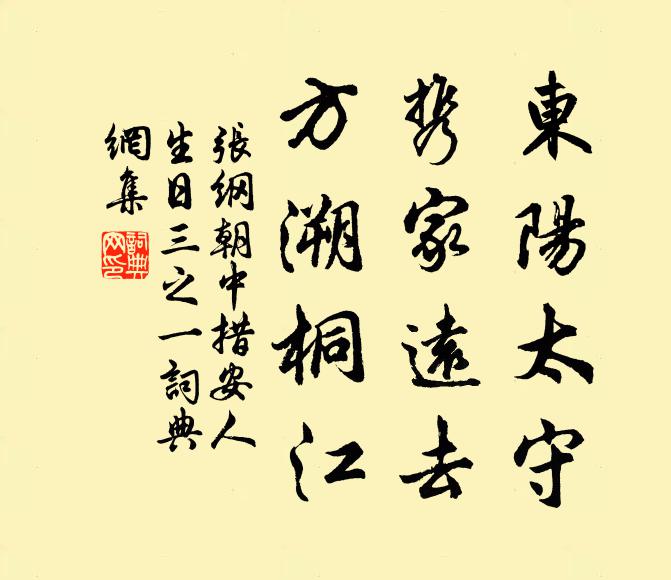 東陽太守
携家遠去
方溯桐江
張纲朝中措安人
生日三之一詞典
網集
詞典
网印